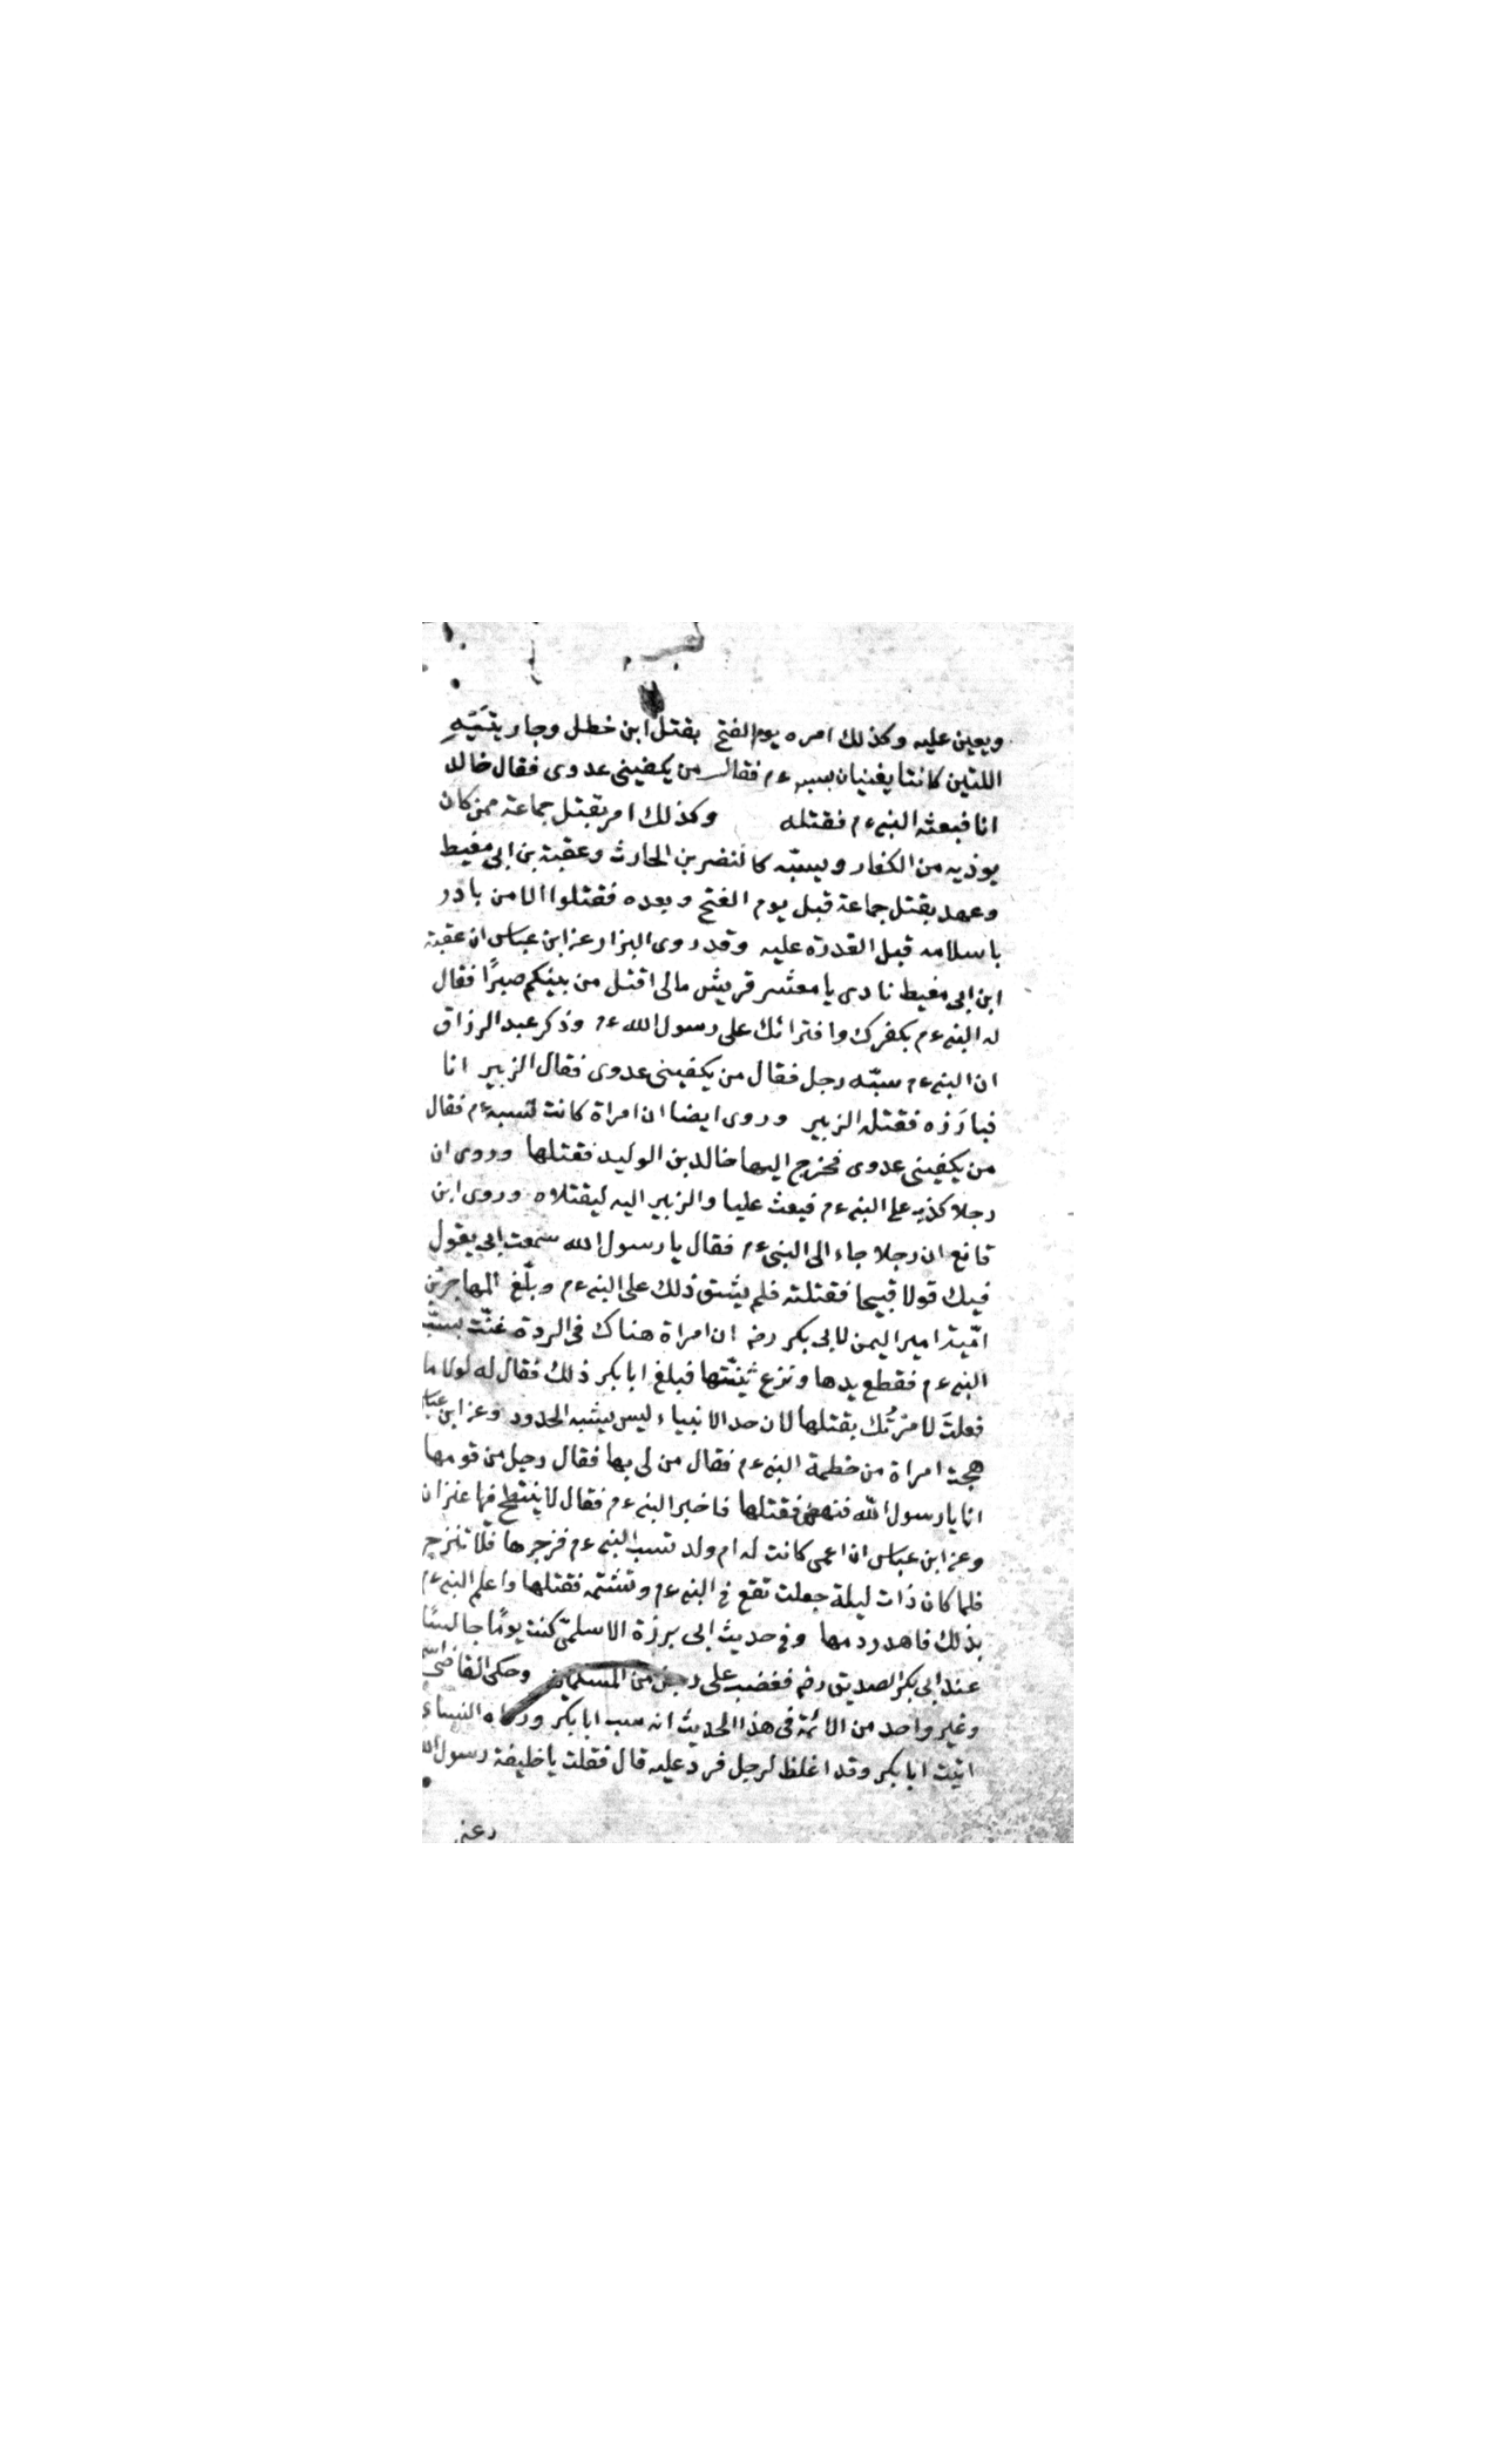 ويعين عليه وكذلك امره يوم الفتح بقتل ابن خطل وجاريتيه
اللتين كانتا يغنيان بسبه عم فقال من يكفينى عدوى فقال خالد
انا فبعثه النبى عم فقتله وكذلك امر بقتل جماعة ممن كان
يوذيه من الكفار ويسبّه كالنضر بن الحارث وعقبة بن ابى معيط
وعهد بقتل جماعة قبل يوم الفتح وبعده فقتلوا الا من بادر
باسلامه قبل القدرة عليه وقد روى البزار عن ابن عباس ان عقبة
ابن ابى معيط نادى يا معشر قريش مالى اقتل من بينكم صبرًا فقال
له النبى عم بكفرك وافترائك على رسول الله عم وذكر عبد الرزاق
ان النبى عم سبّه رجل فقال من يكفينى عدوى فقال الزبير انا
فبارَزه فقتله الزبير وروى ايضا ان امراة كانت تسبه عم فقال
من يكفينى عدوى فخرج اليها خالد بن الوليد فقتلها وروى ان
رجلا كذب على النبى عم فبعث عليا والزبير اليه ليقتلاه وروى ابن
قانع ان رجلا جاء الى النبى عم فقال يا رسول الله سمعت ابى يقول
فيك قولا قبيحا فقتلته فلم يشق ذلك على النبى عم وبلّغ المهاجر بن
امّية امير اليمن لابى بكر رضه ان امراة هناك فى الردة غنّت بسبّ
النبى عم فقطع يدها ونزع ثنيّتها فبلغ ابا بكر ذلك فقال له لولا ما
فعلتَ لامرْتُك بقتلها لان حد الانبياء ليس يشبه الحدود وعن ابن عباس
هجت امراة من خطمة النبى عم فقال من لى بها فقال رجل من قومها
انا يا رسول الله فنهض فقتلها فاخبر النبى عم فقال لا ينتطح فيها عنزان
وعن ابن عباس ان اعمى كانت له ام ولد تسب النبى عم فزجرها فلا تنزجر
فلما كان ذات ليلة جعلت تقع فى النبى عم وتشتمه فقتلها واعلم النبى عم
بذلك فاهدر دمها وفى حديث ابى برزة الاسلمىّ كنت يومًا جالسًا
عند ابى بكر الصديق رضه فغضب على رجل من المسلمين وحكى القاضى
وغير واحد من الائمة فى هذا الحديث انه سب ابا بكر ورواه النساى
اتيت ابا بكر وقد اغلظ لرجل فرد عليه قال فقلت يا خليفة رسول الله
دعنى